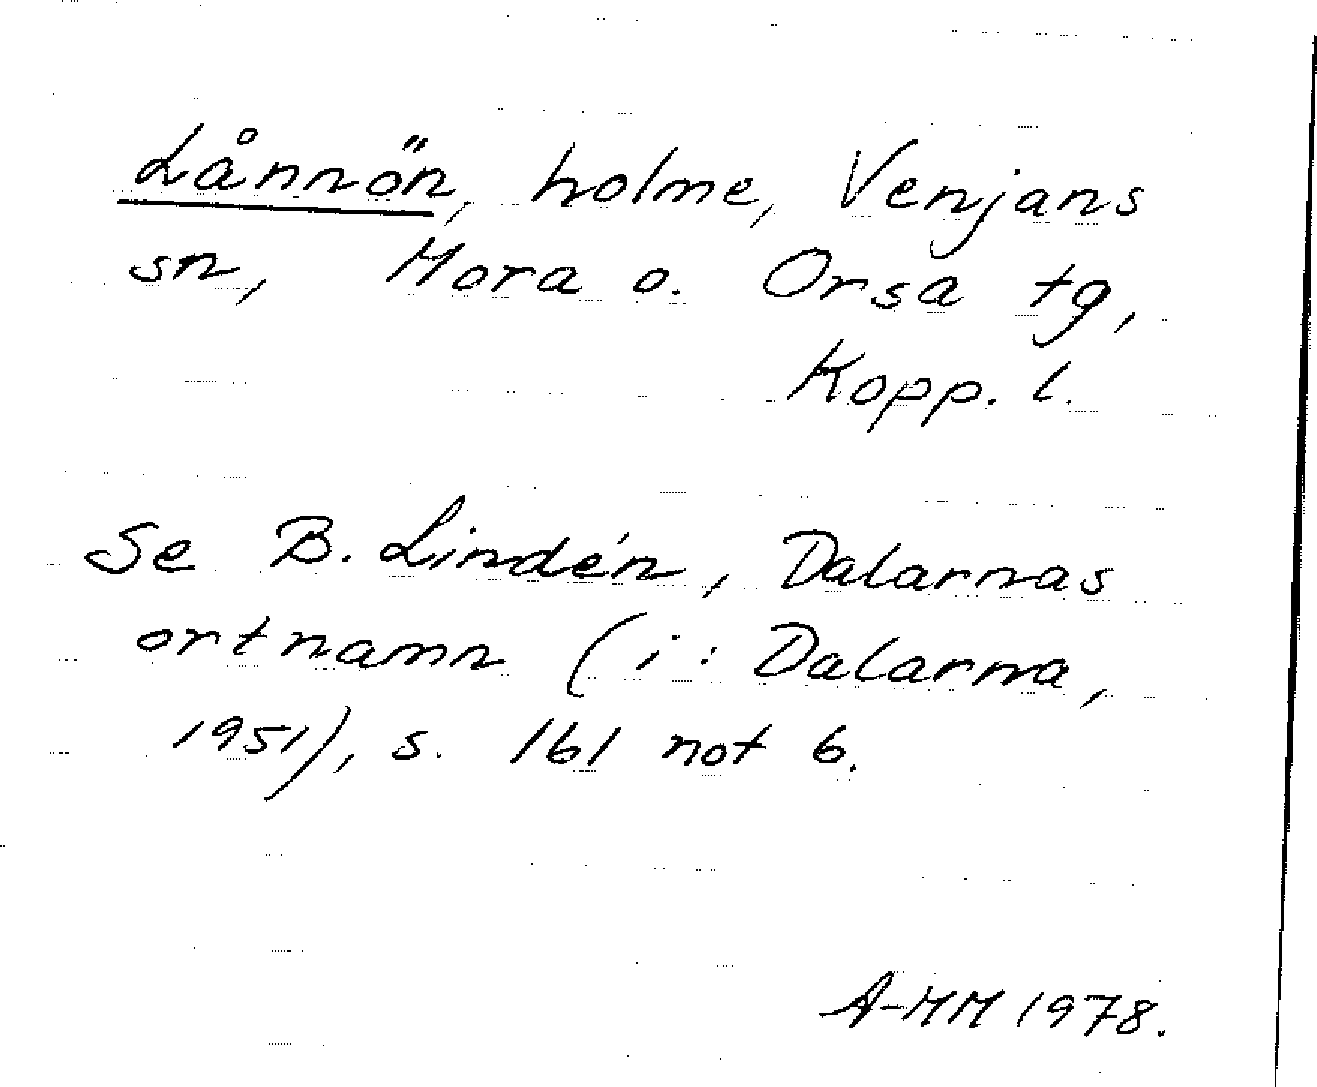 Lånnön, holme, Venjans
sn, Mora o. Orsa tg,
Kopp. l.
Se B. Lindén, Dalarnas
ortnamn (i: Dalarna,
1951), s. 161 not 6.
A-MM 1978.